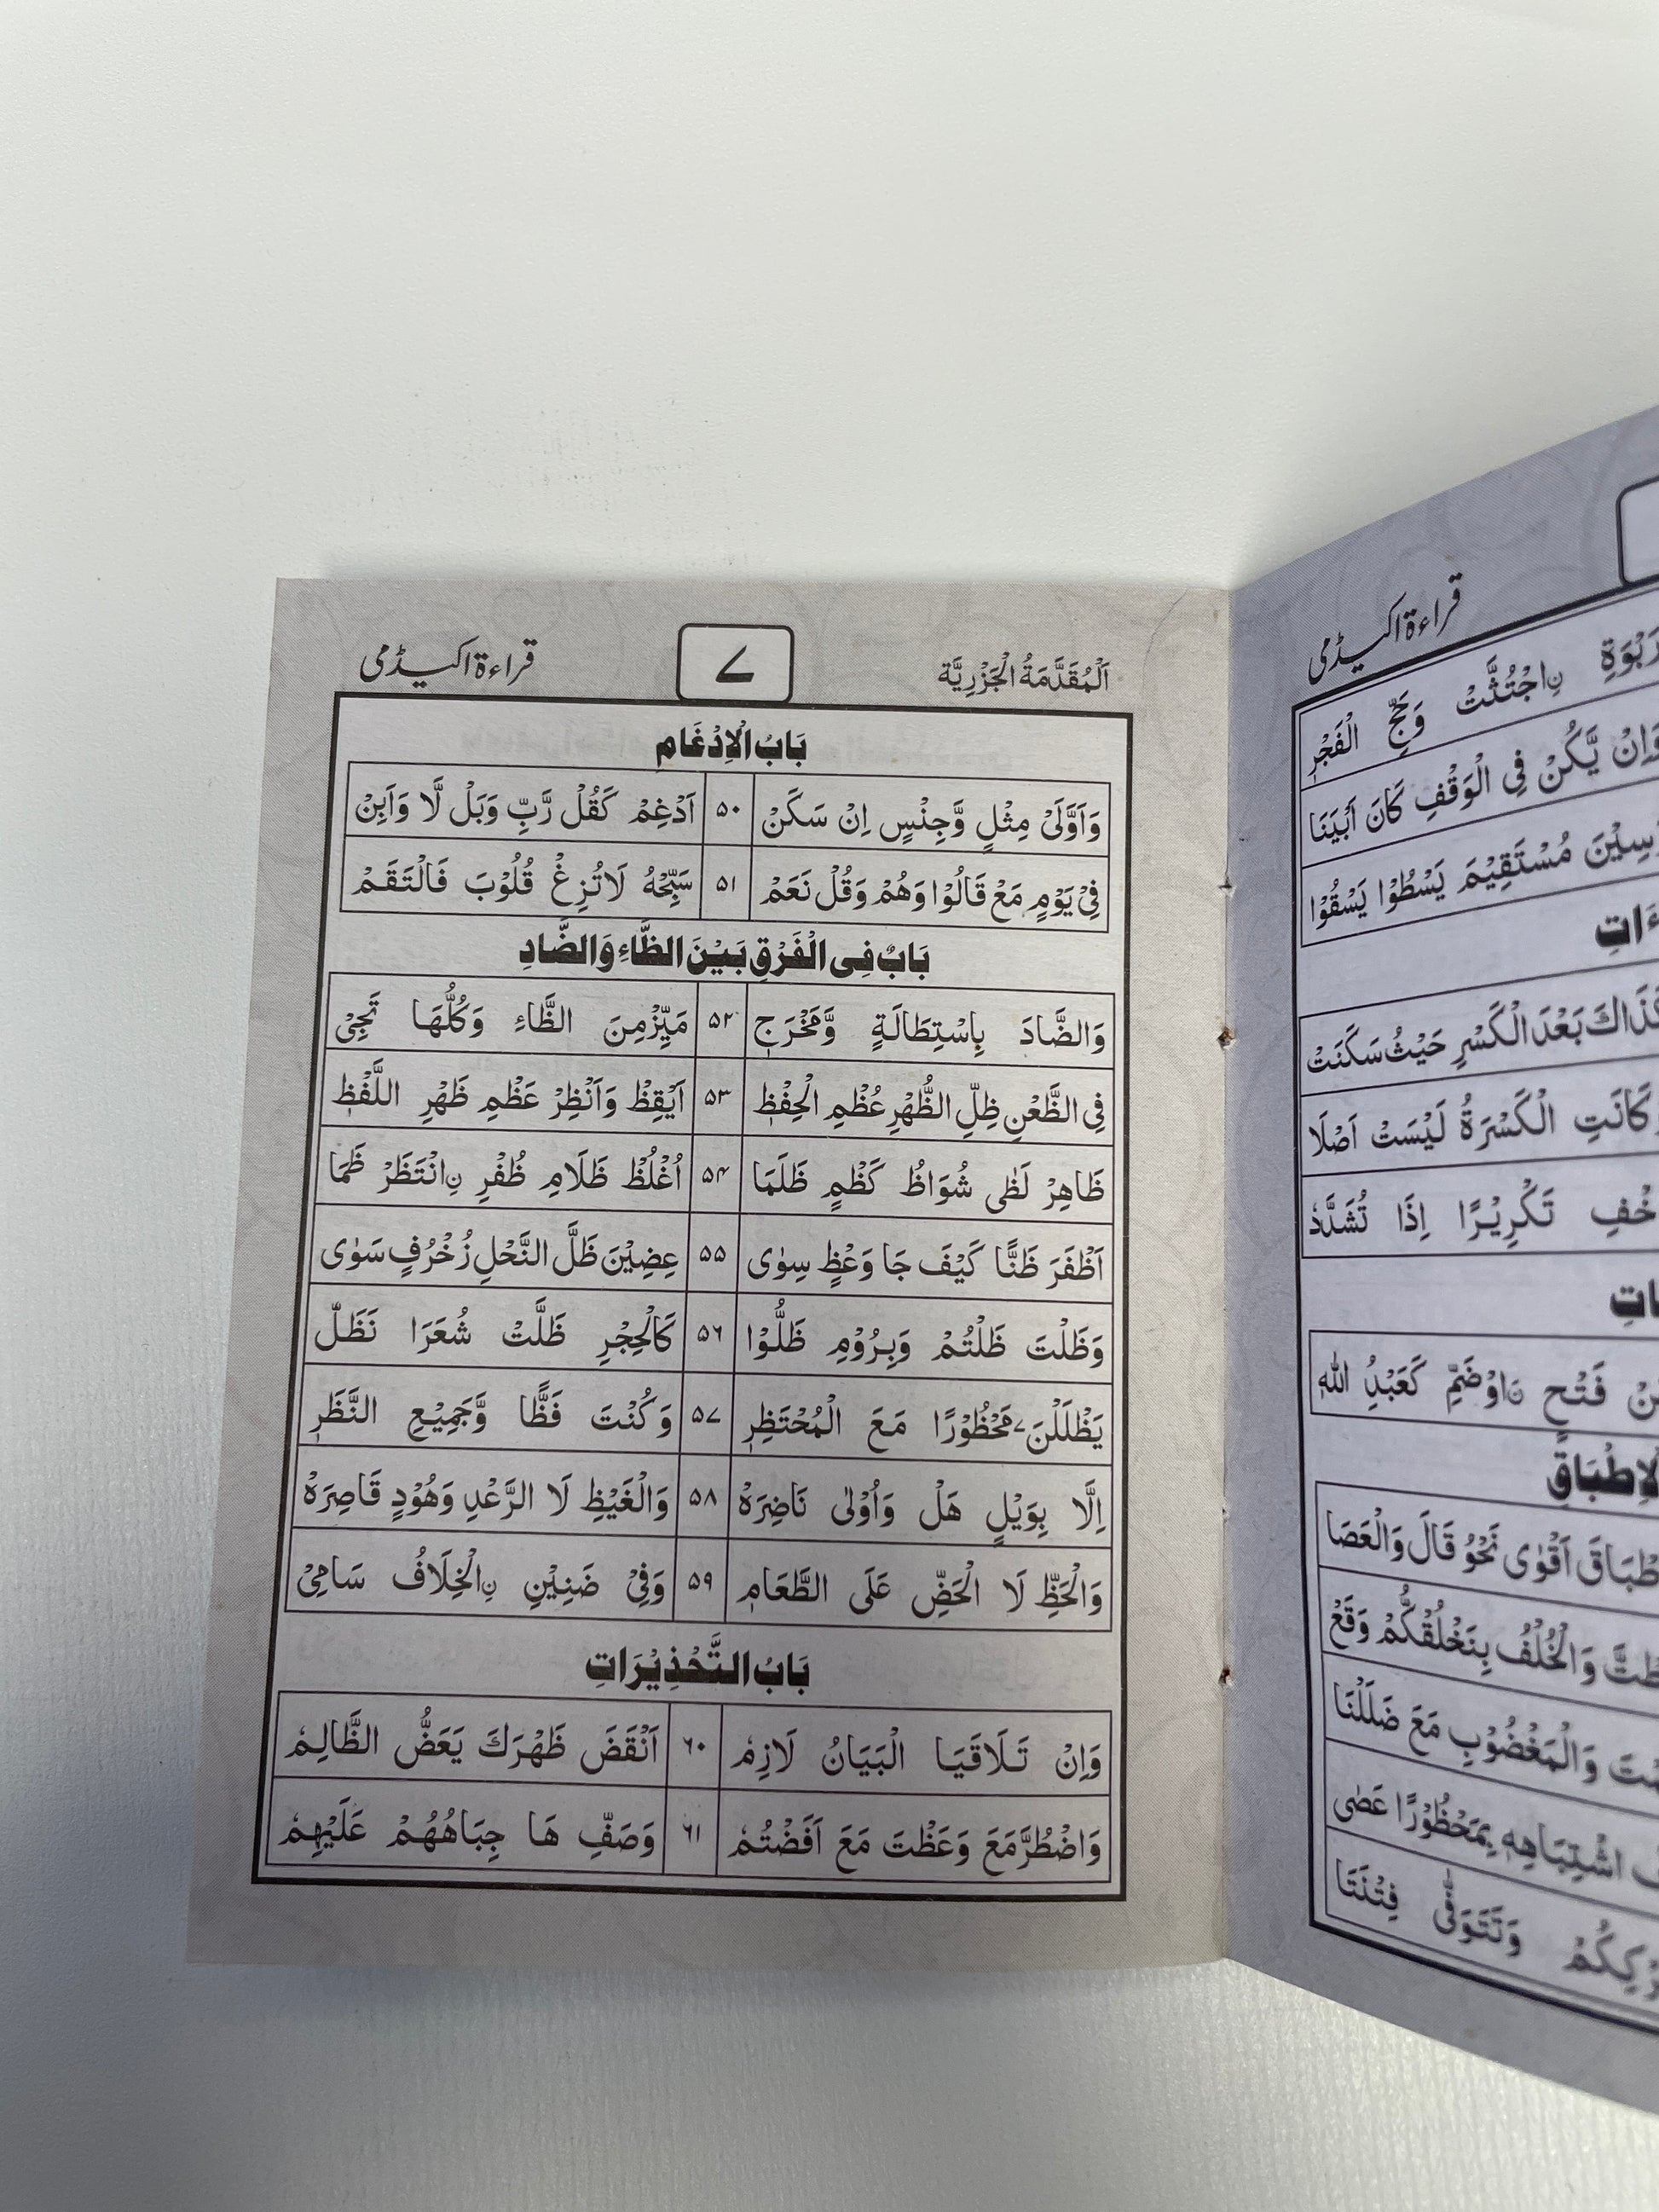 اَلْمُقَدَّمَةُ الْجَزْرِيَّة ٧ قراءة اکیڈمی
بَابُ الْاِدْغَامِ
وَاَوَّلَىْ مِثْلٍ وَّجِنْسٍ اِنْ سَكَنْ ۵۰ اَدْغِمْ كَقُلْ رَّبِّ وَبَلْ لَّا وَاَبِنْ
فِىْ يَوْمٍ مَعْ قَالُوْا وَهُمْ وَقُلْ نَعَمْ ۵۱ سَبِّحْهُ لَاتُزِغْ قُلُوْبَ فَالْتَقَمْ
بَابٌ فِى الْفَرْقِ بَيْنَ الظَّاءِ وَالضَّادِ
وَالضَّادَ بِاِسْتِطَالَةٍ وَّمَخْرَجٖ ۵۲ مَيِّزْمِنَ الظَّاءِ وَكُلُّهَا تَجِىْ
فِى الظَّعْنِ ظِلِّ الظُّهْرِ عُظْمِ الْحِفْظِ ۵۳ اَيْقِظْ وَاَنْظِرْ عَظْمِ ظَهْرِ اللَّفْظِ
ظَاهِرْ لَظٰى شُوَاظُ كَظْمٍ ظَلَمَا ۵۴ اُغْلُظْ ظَلَامِ ظُفْرِ نِانْتَظَرْ ظَمَا
اَظْفَرَ ظَنًّا كَيْفَ جَا وَعْظٍ سِوٰى ۵۵ عِضِيْنَ ظَلَّ النَّحْلِ زُخْرُفٍ سَوٰى
وَظَلْتَ ظَلْتُمْ وَبِرُوْمٍ ظَلُّوْا ۵۶ كَالْحِجْرِ ظَلَّتْ شُعَرَا نَظَلُّ
يَظْلَلْنَ مَحْظُوْرًا مَعَ الْمُحْتَظِرِ ۵۷ وَكُنْتَ فَظًّا وَّجَمِيْعِ النَّظَرِ
اِلَّا بِوَيْلٍ هَلْ وَاُوْلٰى نَاضِرَهْ ۵۸ وَالْغَيْظِ لَا الرَّعْدِ وَهُوْدٍ قَاصِرَهْ
وَالْحَظِّ لَا الْحَضِّ عَلَى الطَّعَامِ ۵۹ وَفِىْ ضَنِيْنِ نِالْخِلَافُ سَامِىْ
بَابُ التَّحْذِيْرَاتِ
وَاِنْ تَلَاقَيَا الْبَيَانُ لَازِمٗ ۶۰ اَنْقَضَ ظَهْرَكَ يَعَضُّ الظَّالِمٗ
وَاضْطُرَّمَعَ وَعَظْتَ مَعَ اَفَضْتُمٗ ۶۱ وَصَفِّ هَا جِبَاهُهُمْ عَلَيْهِمٗ
قراءة اکیڈمی
رَبْوَةِ نِاجْتُثَّتْ وَحَجِّ الْفَجْرِ
وَاِنْ يَّكُنْ فِى الْوَقْفِ كَانَ اَبْيَنَا
مُسْتَقِيْمَ يَسْطُوْا يَسْقُوْا
بَعْدَ الْكَسْرِ حَيْثُ سَكَنَتْ
كَانَتِ الْكَسْرَةُ لَيْسَتْ اَصْلَا
تَكْرِيْرًا اِذَا تُشَدَّدٗ
فَتْحٍ نَاوْضَمٍّ كَعَبْدُ اللهِ
اَقْوٰى نَحْوُ قَالَ وَالْعَصَا
وَالْخُلْفُ بِنَخْلُقْكُّمْ وَقَعْ
وَالْمَغْضُوْبِ مَعَ ضَلَلْنَا
اشْتِبَاهِهٖ بِمَحْظُوْرًا عَصٰى
وَتَتَوَفّٰى فِتْنَتَا